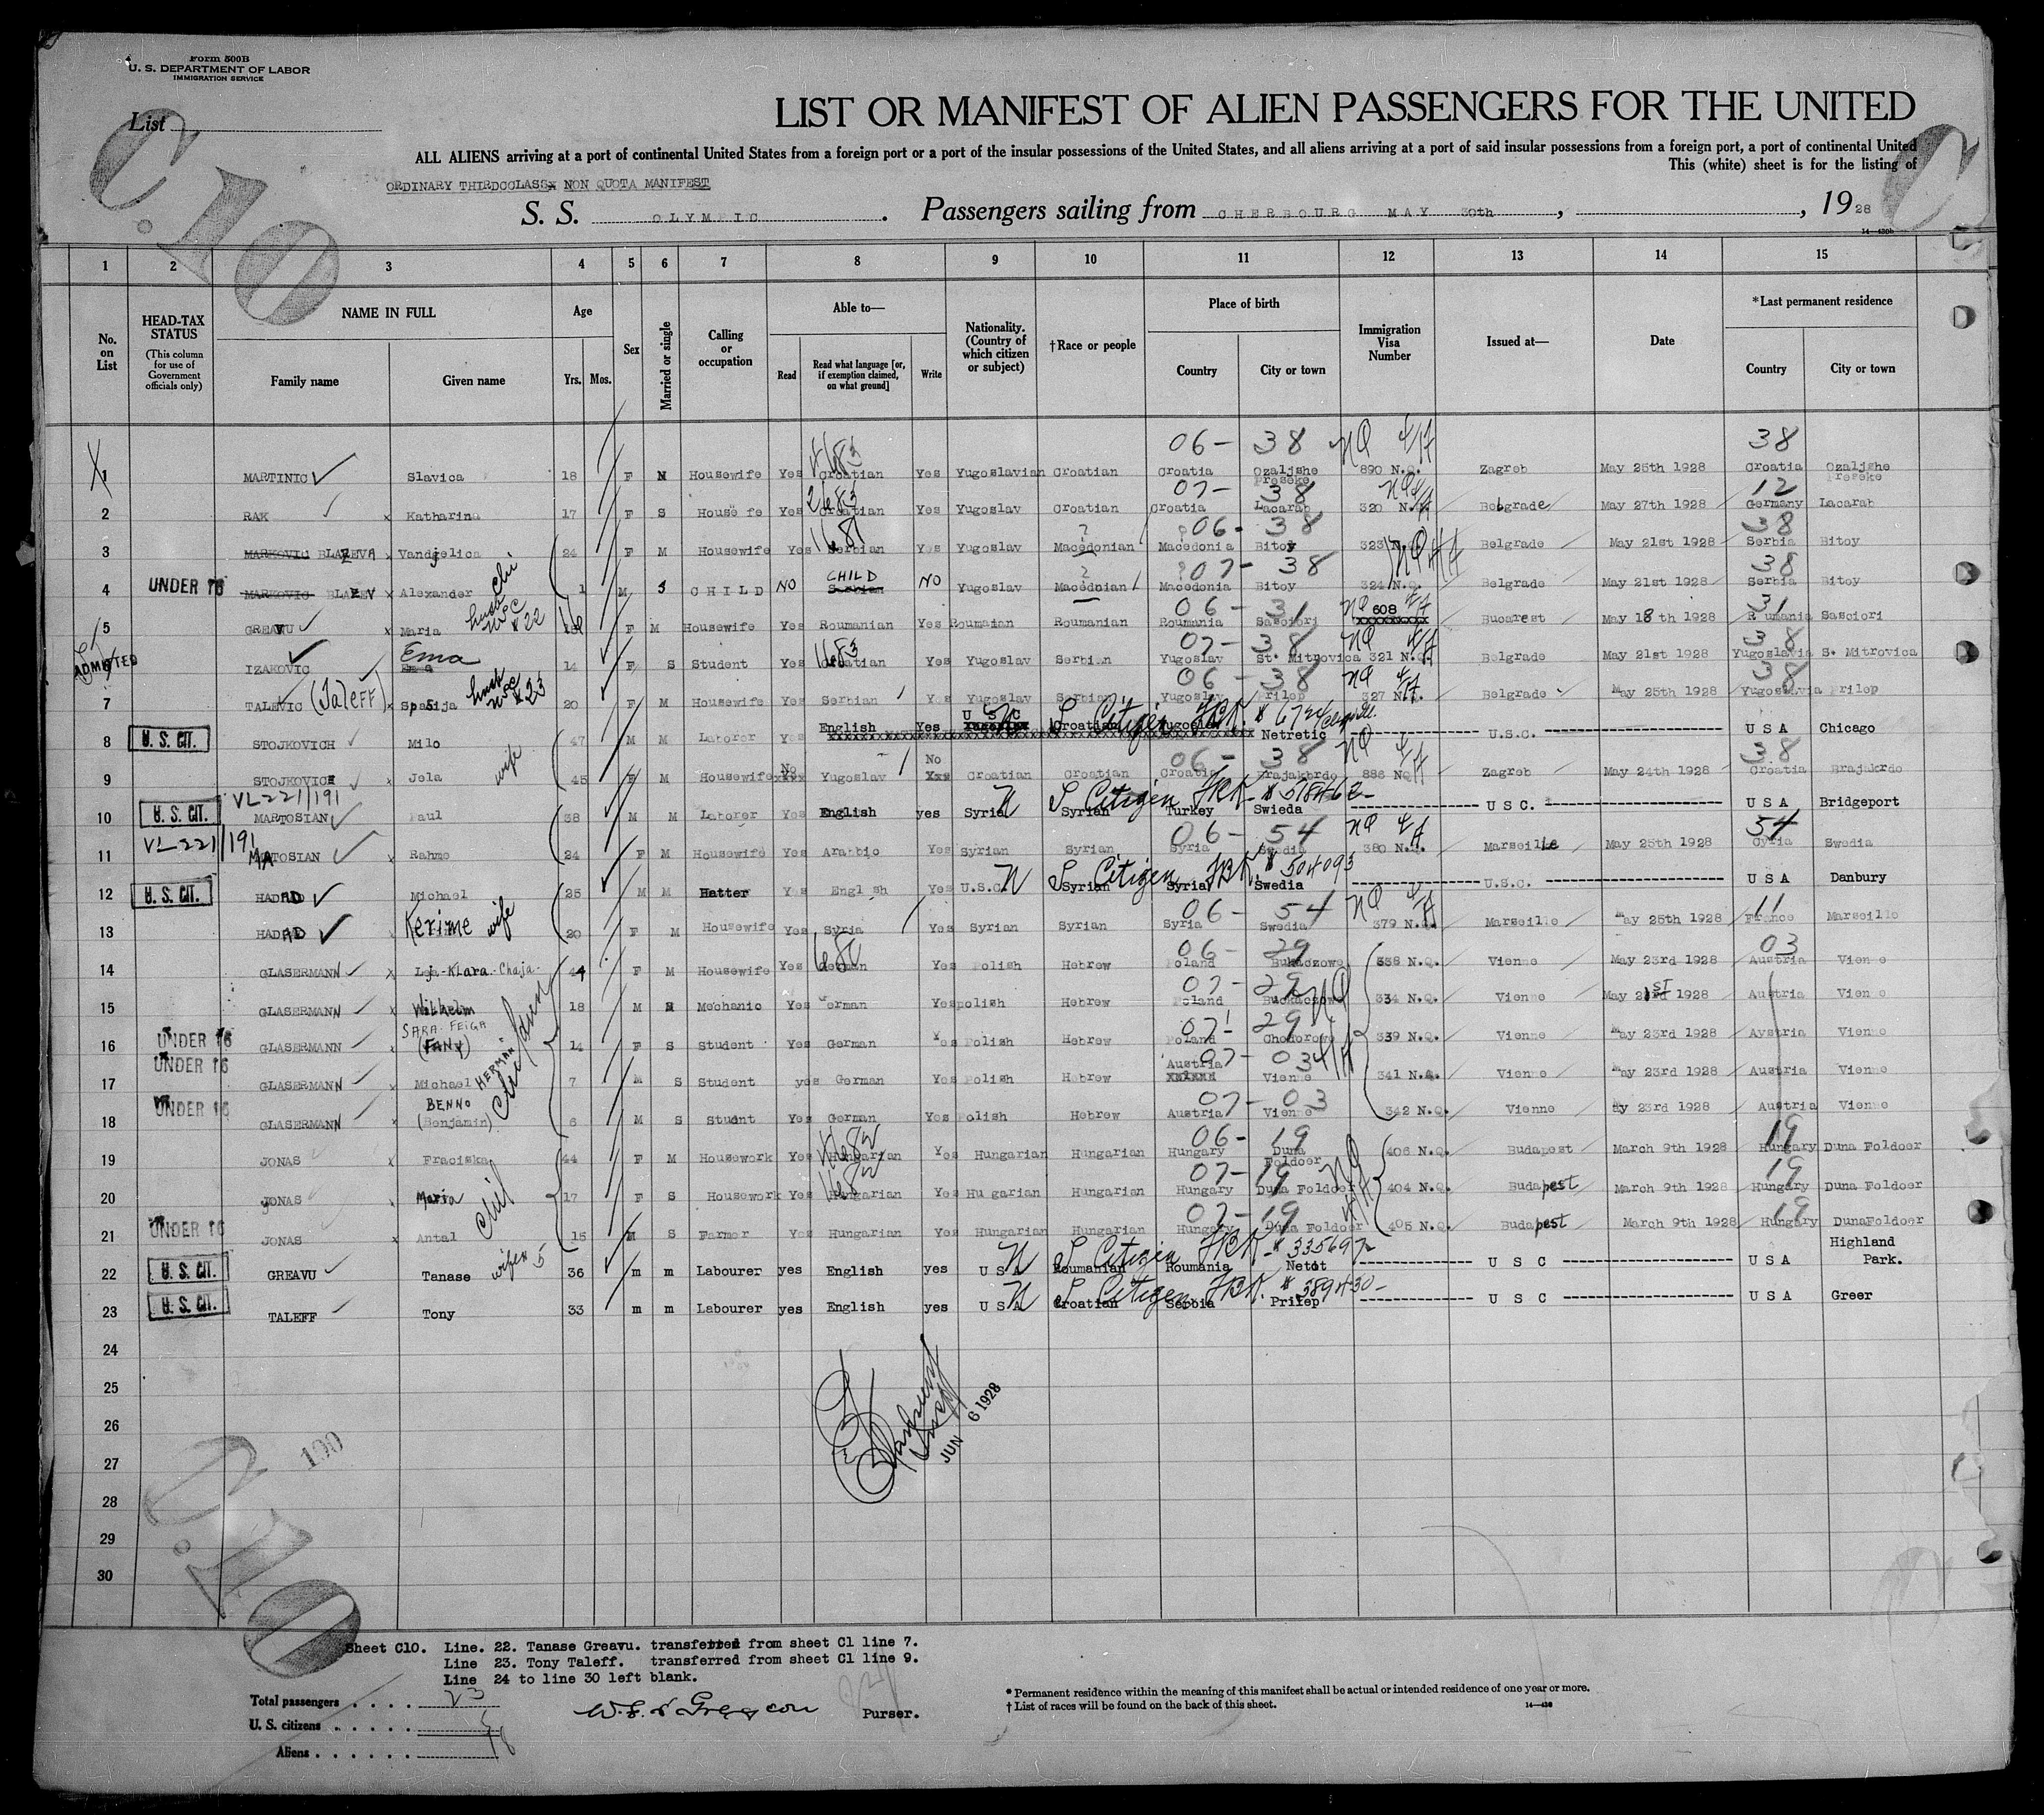 Form 500B
U. S. DEPARTMENT OF LABOR
IMMIGRATION SERVICE
List
C.10
LIST OR MANIFEST OF ALIEN PASSENGERS FOR THE UNITED
ALL ALIENS arriving at a port of continental United States from a foreign port or a port of the insular possessions of the United States, and all aliens arriving at a port of said insular possessions from a foreign port, a port of continental United
This (white) sheet is for the listing of
ORDINARY THIRDCOLASSx NON QUOTA MANIFEST
S. S. OLYMPIC . Passengers sailing from CHERBOURG MAY 30th , , 19 28
14—430b
1 2 3 4 5 6 7 8 9 10 11 12 13 14 15
No. on List
HEAD-TAX STATUS (This column for use of Government officials only)
NAME IN FULL Family name Given name
Age Yrs. Mos.
Sex
Married or single
Calling or occupation
Able to— Read Read what language [or, if exemption claimed, on what ground] Write
Nationality. (Country of which citizen or subject)
†Race or people
Place of birth Country City or town
Immigration Visa Number
Issued at—
Date
*Last permanent residence Country City or town
06- 38 NQ 38
1 MARTINIC Slavica 18 F M Housewife Yes Croatian Yes Yugoslavian Croatian Croatia Ozaljshe Preseke 890 N.Q. Zagreb May 25th 1928 Croatia Ozaljshe Preseke
07- 38 NQ 12
2 RAK x Katharina 17 F S House fe Yes Croatian Yes Yugoslav Croatian Croatia Lacarab 320 N.Q. Belgrade May 27th 1928 Germany Lacarab
06- 38 38
3 MARKOVIC BLAZEVA x Vandjelica 24 F M Housewife Yes Serbian Yes Yugoslav Macedonian Macedonia Bitoy 323 N.Q. Belgrade May 21st 1928 Serbia Bitoy
07- 38 NQ 38
4 UNDER 16 MARKOVIC BLAZEV x Alexander 1 M S CHILD NO CHILD Serbian NO Yugoslav Macedonian Macedonia Bitoy 324 N.Q. Belgrade May 21st 1928 Serbia Bitoy
06- 31 NQ 608 31
5 GREAVU x Maria F M Housewife Yes Roumanian Yes Roumaian Roumanian Roumania Sasciori Bucarest May 18th 1928 R umania Sasciori
07- 38 NQ 38
ADMITTED IZAKOVIC Ema 14 F S Student Yes Croatian Yes Yugoslav Serbian Yugoslav St. Mitrovica 321 N.Q. Belgrade May 21st 1928 Yugoslavia S. Mitrovica
06- 38 NQ 38
7 TALEVIC (Taleff) x Spasija 20 F M Housewife Yes Serbian Yes Yugoslav Serbian Yugoslav Prilep 327 N.Q. Belgrade May 25th 1928 Yugoslavia Prilep
8 U. S. CIT. STOJKOVICH Milo 47 M M Laborer Yes English Yes U S C Croatian Yugoslav Netretic U.S.C. U S A Chicago
U S Citizen
06- 38 NQ 38
9 STOJKOVICH x Jela wife 45 F M Housewife No Yugoslav No Croatian Croatian Croatia Brajakbrdo 886 NQ Zagreb May 24th 1928 Croatia Brajakrdo
VL-221/191
10 U. S. CIT. MARTOSIAN Paul 38 M M Laborer Yes English yes Syria Syrian Turkey Swieda U S C. U S A Bridgeport
U S Citizen
VL-221/191 06- 54 NQ 54
11 MATOSIAN x Rahme 24 F M Housewife Yes Arabbic Yes Syrian Syrian Syria Swedia 380 N.Q. Marseille May 25th 1928 Cyria Swedia
12 U. S. CIT. HADAD Michael 25 M M Hatter Yes Engl sh Yes U.S.C. Syrian Syria Swedia U.S.C. U S A Danbury
U S Citizen # 504093
06- 54 NQ 11
13 HADAD x Kerime wife 20 F M Housewife Yes Syria Yes Syrian Syrian Syria Swedia 379 N.Q. Marseille May 25th 1928 France Marseille
06- 29 03
14 GLASERMANN x Klara-Chaja 44 F M Housewife Yes German Yes Polish Hebrew Poland Bukaczowc 338 N.Q. Vienne May 23rd 1928 Austria Vienne
07- 29 NQ
15 GLASERMANN x Wilhelm 18 M S Mechanic Yes German Yes polish Hebrew Poland Buckaczowc 334 N.Q. Vienne May 21st 1928 Austria Vienne
SARA-FEIGA 07- 29
16 UNDER 16 GLASERMANN x (FANY) 14 F S Student Yes German Yes Polish Hebrew Poland Chodorowc 339 N.Q. Vienne May 23rd 1928 Avstria Vienne
HERMAN 07- 03
17 UNDER 16 GLASERMANN x Michael 7 M S Student yes German Yes Polish Hebrew Austria Vienne 341 N.Q. Vienne May 23rd 1928 Austria Vienne
BENNO 07- 03
18 UNDER 16 GLASERMANN x (Benjamin) 6 M S Studnt Yes German Yes Polish Hebrew Austria Vienne 342 N.Q. Vienne My 23rd 1928 Austria Vienne
06- 19 19
19 JONAS x Fraciska 44 F M Housework Yes Hungarian Yes Hungarian Hungarian Hungary Duna Foldoer 406 N.Q. Budapest March 9th 1928 Hungary Duna Foldoer
07- 19 NQ 19
20 JONAS x Maria 17 F S Housework Yes Hungarian Yes Hu garian Hungarian Hungary Duna Foldoer 404 N.Q. Budapest March 9th 1928 Hungary Duna Foldoer
07- 19 19
21 UNDER 16 JONAS x Antal 15 M S Farmer Yes Hungarian Yes Hungarian Hungarian Hungary Duna Foldoer 405 N.Q. Budapest March 9th 1928 Hungary DunaFoldoer
22 U. S. CIT. GREAVU Tanase 36 m m Labourer yes English yes U S A Roumanian Roumania Netot U S C U S A Highland Park.
U S Citizen
23 U. S. CIT. TALEFF Tony 33 m m Labourer yes English yes U S A Croatian Serbia Prilep U S C U S A Greer
U S Citizen
24
25
JUN 6 1928
26
27
190
28
29
30
C.10
Sheet C10. Line. 22. Tanase Greavu. transferred from sheet C1 line 7.
Line 23. Tony Taleff. transferred from sheet C1 line 9.
Line 24 to line 30 left blank.
Total passengers . . . . 23
U. S. citizens . . . . .
Aliens . . . . . .
Purser.
* Permanent residence within the meaning of this manifest shall be actual or intended residence of one year or more.
† List of races will be found on the back of this sheet.
14—430